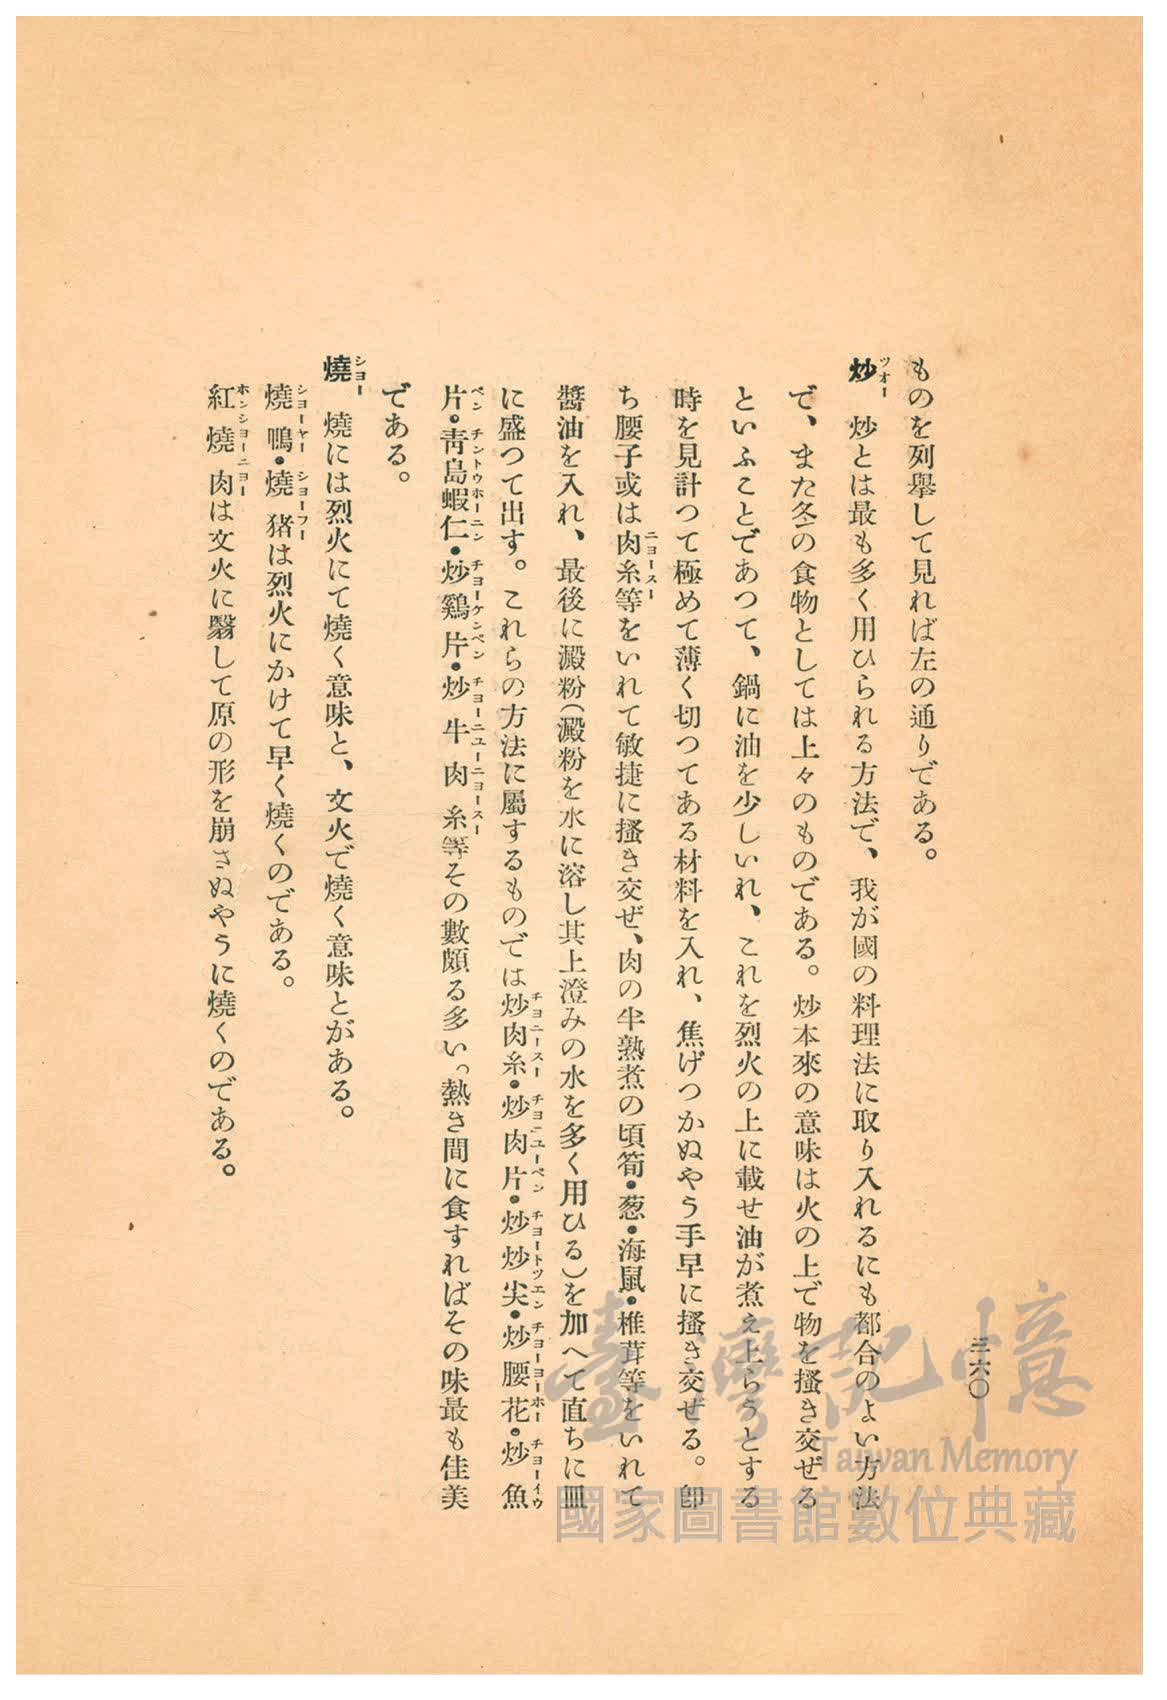 ものを列擧して見れば左の通りである。
炒ツオー　炒とは最も多く用ひられる方法で、我が國の料理法に取り入れるにも都合のよい方法
で、また冬の食物としては上々のものである。炒本來の意味は火の上で物を搔き交ぜる
といふことであつて、鍋に油を少しいれ、これを烈火の上に載せ油が煮え上らうとする
時を見計つて極めて薄く切つてある材料を入れ、焦げつかぬやう手早に搔き交ぜる。卽
ち腰子或は肉糸ニヨースー等をいれて敏捷に搔き交ぜ、肉の半熟煮の頃筍・葱・海鼠・椎茸等をいれて
醬油を入れ、最後に澱粉(澱粉を水に溶し其上澄みの水を多く用ひる)を加へて直ちに皿
に盛つて出す。これらの方法に屬するものでは炒肉糸チヨニースー・炒肉片チヨニユーペン・炒炒尖チヨートツエン・炒腰花チヨーヨーホー・炒魚チヨーイウ
片ペン・靑島蝦仁チントウホーニン・炒鷄片チヨーケンペン・炒牛肉糸チヨーニユーニヨースー等その數頗る多い。熱き間に食すればその味最も佳美
である。
燒シヨー　燒には烈火にて燒く意味と、文火で燒く意味とがある。
燒鴨シヨーヤー・燒猪シヨーフーは烈火にかけて早く燒くのである。
紅燒肉ホンシヨーニヨーは文火に翳して原の形を崩さぬやうに燒くのである。
三六〇
臺灣記憶
Taiwan Memory
國家圖書館數位典藏